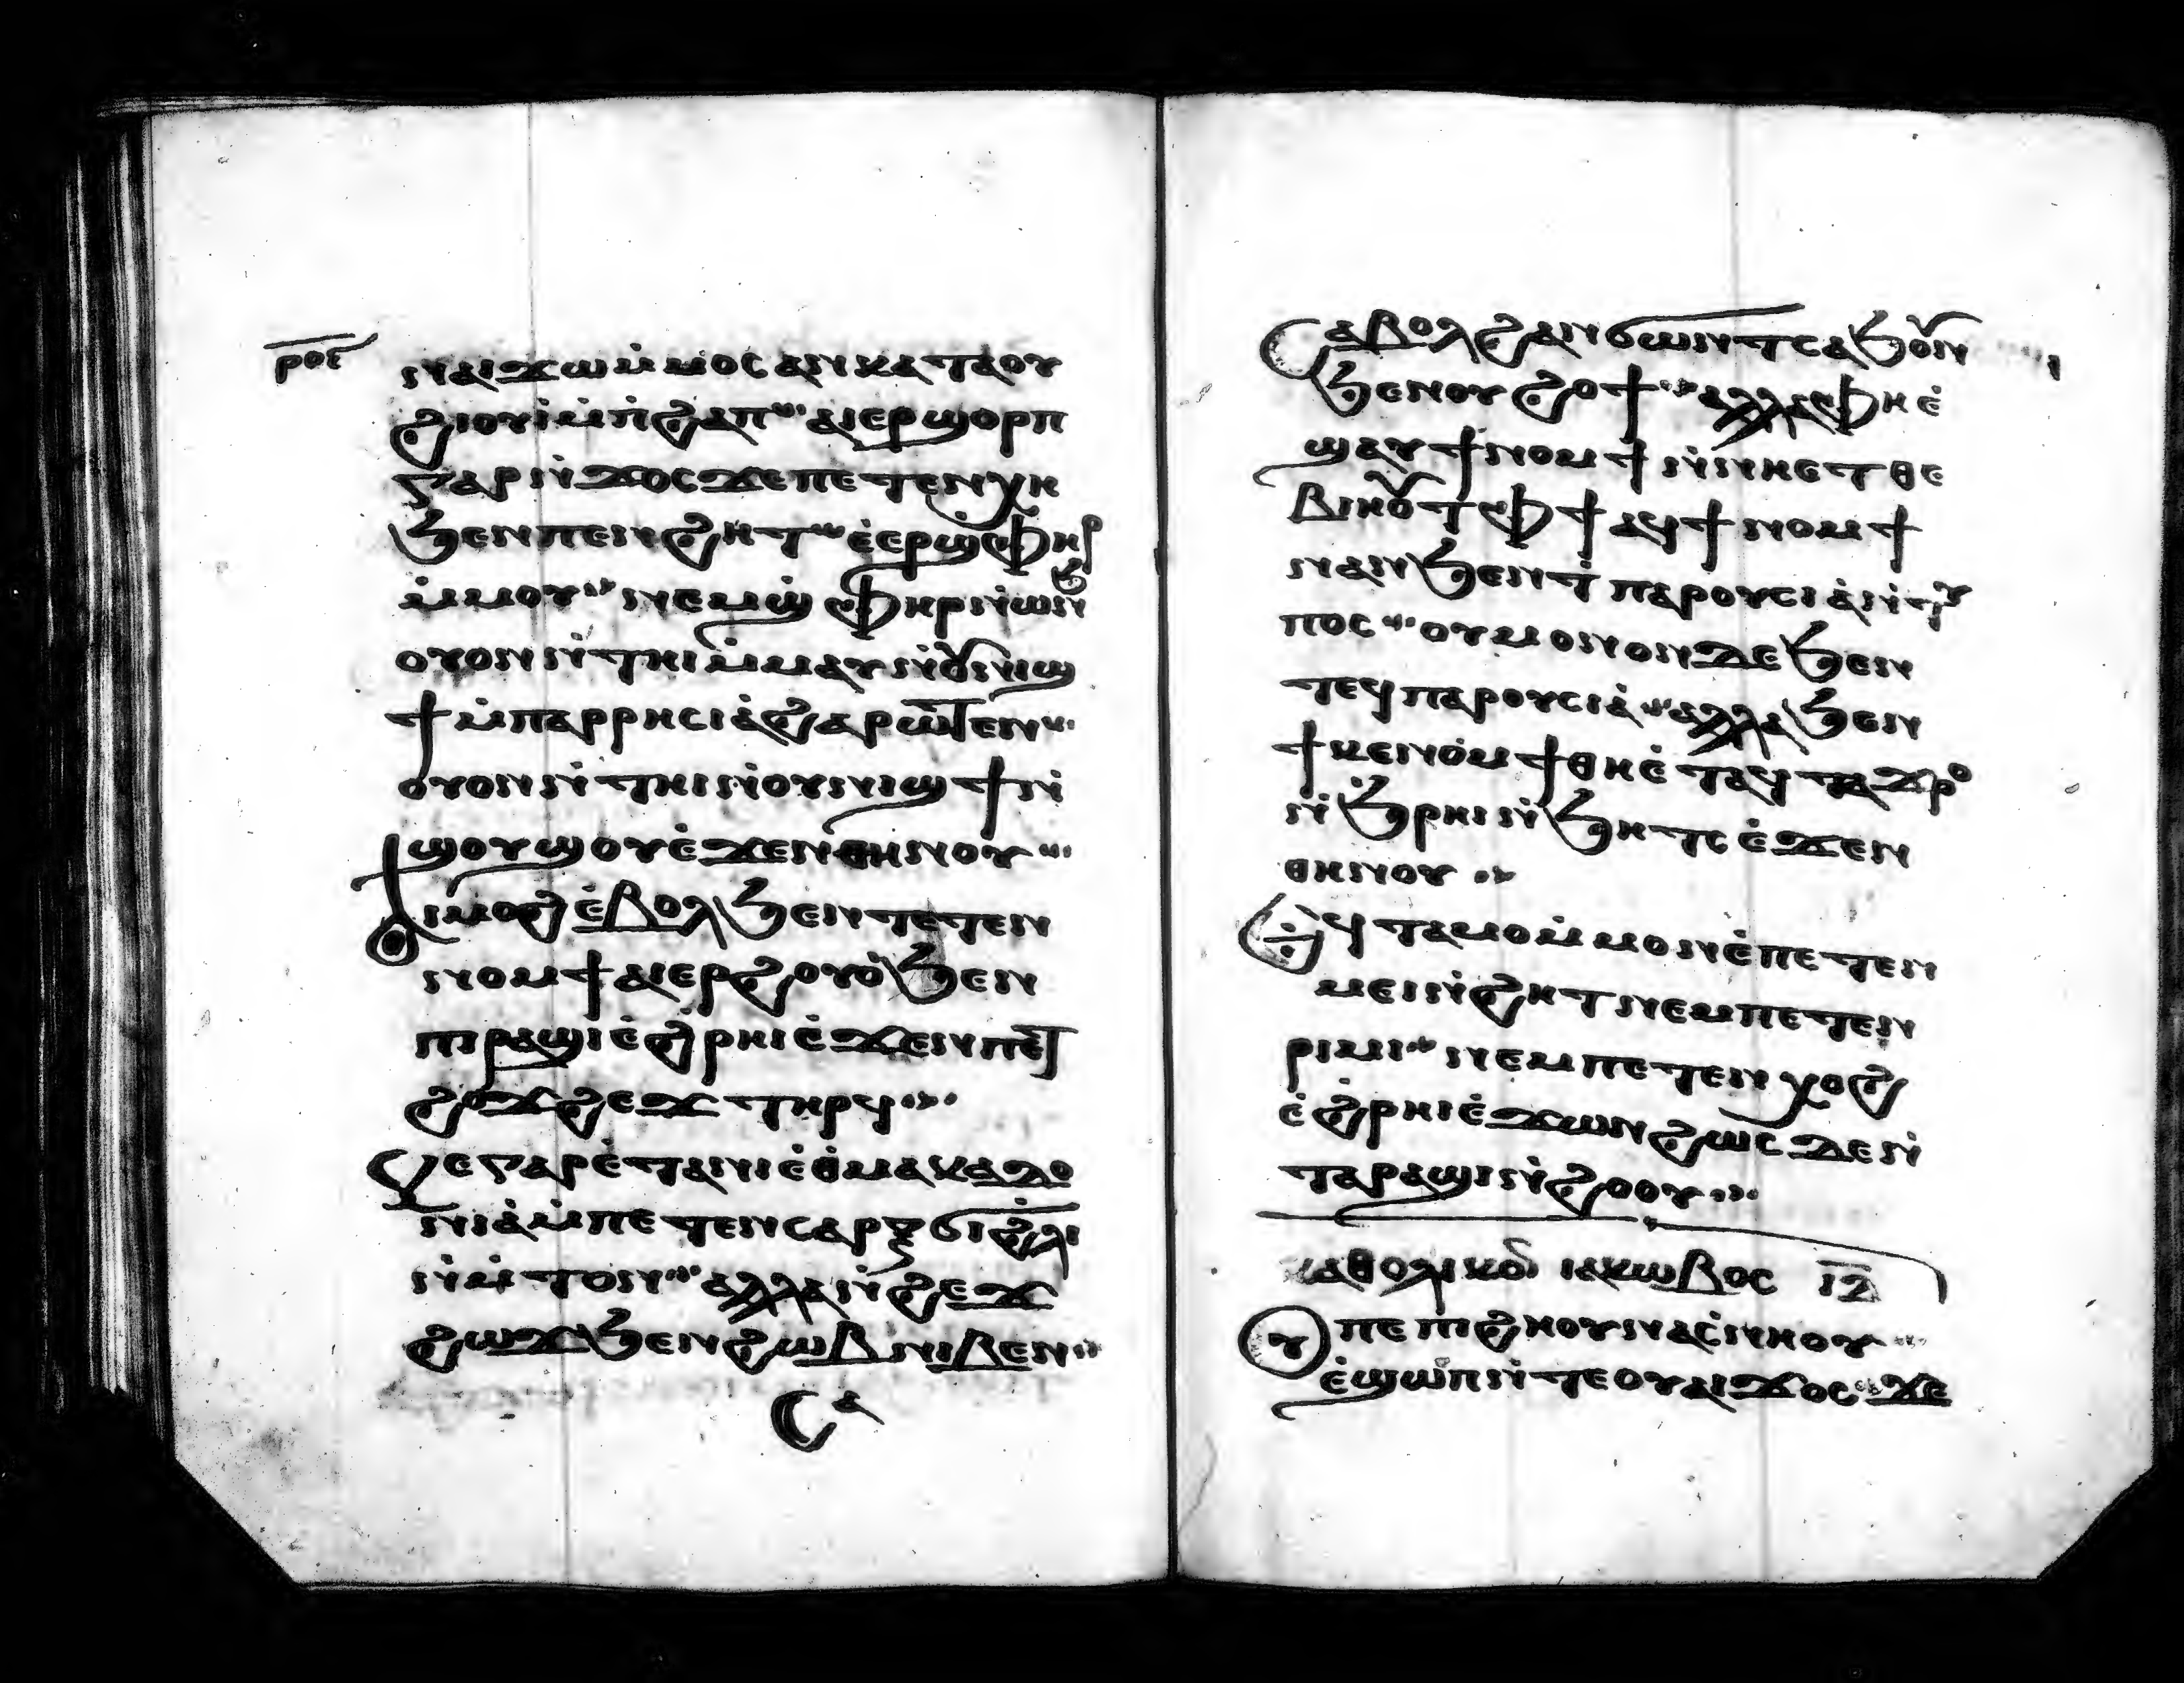 ⲣⲟⲋ
ⲛⲁⲓϫⲱ ⲙ̇ⲙⲟⲥ ⲁⲛ ⲕⲁⲧⲁ ⲟⲩ
ϩⲓⲟⲩⲓ̇ ⲙ̇ⲡ̇ϩⲁⲡ ⲁⲓⲉⲣϣⲟⲣⲡ
ⲅⲁⲣ ⲛ̇ϫⲟⲥ ϫⲉ ⲡⲉⲧⲉⲛⲭⲏ
ϧⲉⲛ ⲡⲉⲛϩⲏⲧ ⲉ̇ⲉⲣϣ̇ⲫⲏⲣ
ⲙ̇ⲙⲟⲩ ⲛⲉⲙ ϣ̇ⲫⲏⲣ ⲛ̇ⲱⲛϧ
ⲟⲩⲟⲛ ⲛ̇ⲧⲏⲓ ⲙ̇ⲙⲁⲩ ⲛ̇ⲟⲩⲛⲓϣ
ϯ ⲙ̇ⲡⲁⲣⲣⲏⲥⲓⲁ̇ ϩⲁⲣⲱⲧⲉⲛ
ⲟⲩⲟⲛ ⲛ̇ⲧⲏⲓ ⲛ̇ⲟⲩⲛⲓϣϯ ⲛ̇
ϣⲟⲩϣⲟⲩ ⲉ̇ϫⲉⲛ ⲑⲏⲛⲟⲩ
ϯⲙⲟϩ ⲉ̇ⲃⲟⲗ ϧⲉⲛ ⲧⲉⲧⲉⲛ
ⲛⲟⲙϯ ⲁⲓⲉⲣϩⲟⲩⲟ̇ ϧⲉⲛ
ⲡⲓⲣⲁϣⲓ ⲉ̇ϩ̇ⲣⲏⲓ ⲉ̇ϫⲉⲛ ⲡⲉⲧ
ϩⲟϫϩⲉϫ ⲧⲏⲣϥ
ⲕⲉ ⲅⲁⲣ ⲉ̇ⲧⲁⲛⲓ̇ ⲉ̇ⲑ̇ⲙⲁⲕⲉⲇⲟ
ⲛⲓⲁ̇ ⲙ̇ⲡⲉ ⲧⲉⲛⲥⲁⲣⲝ ϭⲓ ϩ̇ⲗⲓ
ⲛ̇ⲙ̇ⲧⲟⲛ ⲁⲗⲗⲁ ⲛ̇ϩⲉϫ
ϩⲱϫ ϧⲉⲛ ϩⲱⲃ ⲛⲓⲃⲉⲛ
ⲥⲁ
ⲥⲁⲃⲟⲗ ϩⲁⲛϭⲱⲛⲧ ⲥⲁϧⲟⲩⲛ
ϧⲉⲛ ⲟⲩϩⲟϯ ⲁⲗⲗⲁ ⲫⲏ ⲉ̇
ϣⲁϥϯⲛⲟⲙϯ ⲛ̇ⲛⲏ ⲉⲧⲑⲉ
ⲃⲓⲏⲟⲩⲧ ⲫϯ ⲁϥϯⲛⲟⲙϯ
ⲛⲁⲛ ϧⲉⲛ ⲧ̇ⲡⲁⲣⲟⲩⲥⲓⲁ̇ ⲛ̇ⲧⲩ
ⲡⲟⲥ ⲟⲩ ⲙⲟⲛⲟⲛ ⲇⲉ ϧⲉⲛ
ⲧⲉϥⲡⲁⲣⲟⲩⲥⲓⲁ̇ ⲁⲗⲗⲁ ϧⲉⲛ
ϯⲕⲉⲛⲟⲙϯ ⲑⲏ ⲉ̇ⲧⲁϥⲧⲁϫⲣⲟ
ⲛ̇ϧ̇ⲣⲏⲓ ⲛ̇ϧⲏⲧⲥ ⲉ̇ϫⲉⲛ
ⲑⲏⲛⲟⲩ
ⲉϥⲧⲁⲙⲟ ⲙ̇ⲙⲟⲛ ⲉ̇ⲡⲉⲧⲉⲛ
ⲙⲉⲓ ⲛ̇ϩⲏⲧ ⲛⲉⲙ ⲡⲉⲧⲉⲛ
ⲣⲓⲙⲓ ⲛⲉⲙ ⲡⲉⲧⲉⲛⲭⲟϩ
ⲉ̇ϩ̇ⲣⲏⲓ ⲉ̇ϫⲱⲛ ϩⲱⲥⲇⲉ ⲛ̇
ⲧⲁⲣⲁϣⲓ ⲛ̇ϩⲟⲩⲟ
ⲕⲁⲑⲟⲗⲓⲕⲟⲛ ⲓⲁⲕⲱⲃⲟⲥ ⲓⲇ
ⲟⲩ ⲡⲉ ⲡⲓϩⲏⲟⲩ ⲛⲁⲥⲛⲏⲟⲩ
ⲉ̇ϣⲱⲡ ⲛ̇ⲧⲉ ⲟⲩⲁⲓ ϫⲟⲥ ϫⲉ